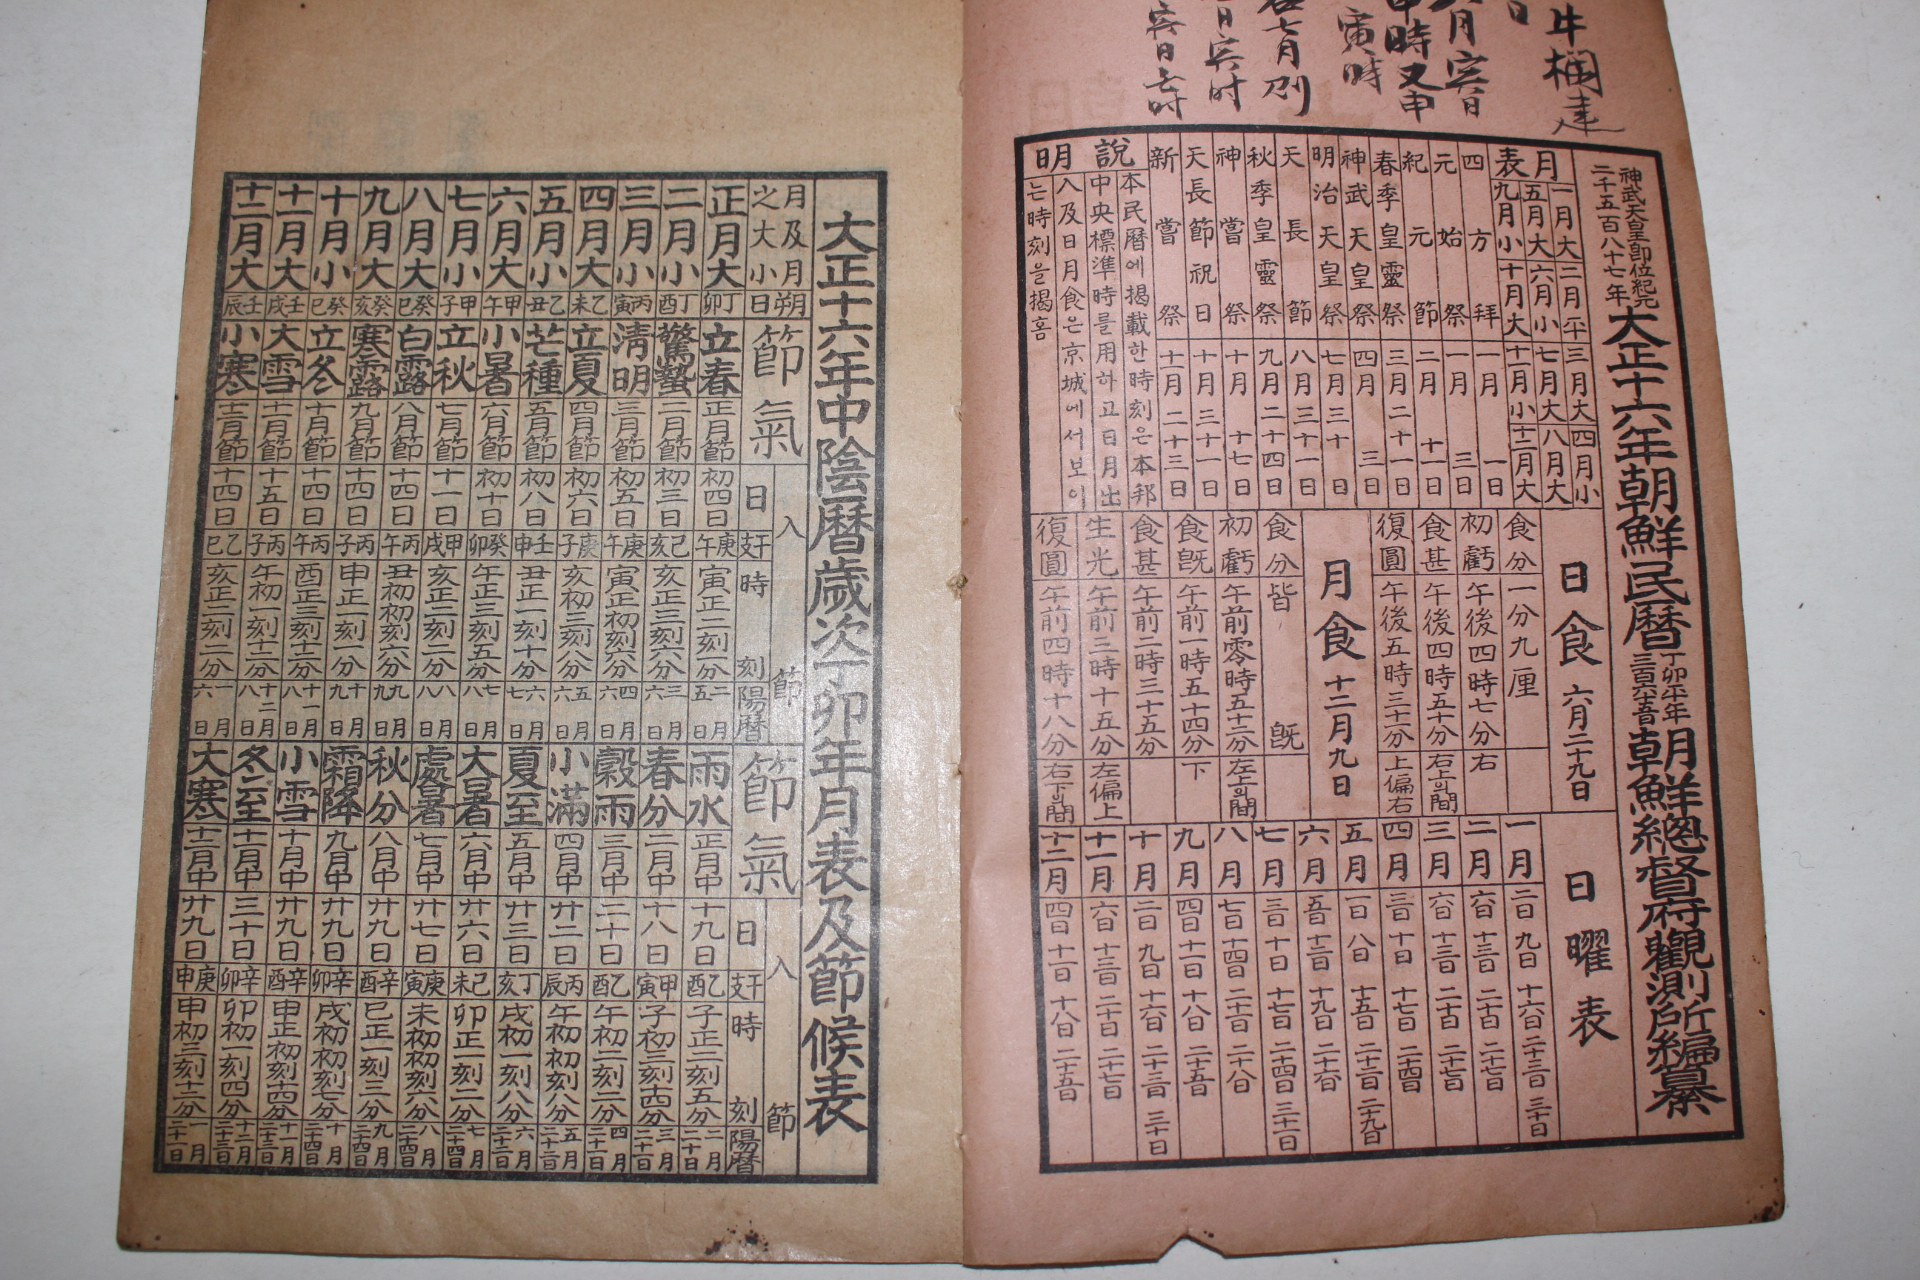 神武天皇即位紀元
二千五百八十七年
大正十六年朝鮮民暦
丁卯平年
三百六十五日
朝鮮總督府觀測所編纂
月表
一月大 二月平 三月大 四月小
五月大 六月小 七月大 八月大
九月小 十月大 十一月小 十二月大
四方拜 一月一日
元始祭 一月三日
紀元節 二月十一日
春季皇靈祭 三月二十一日
神武天皇祭 四月三日
明治天皇祭 七月三十日
天長節 八月三十一日
秋季皇靈祭 九月二十四日
神嘗祭 十月十七日
天長節祝日 十月三十一日
新嘗祭 十一月二十三日
說明
本民曆에揭載한時刻은本邦
中央標準時를用하고日月出
入及日月食은京城에서보이
는時刻을揭홈
日食 六月二十九日
食分 一分九厘
初虧 午後四時七分 右
食甚 午後四時五十分 右上의間
復圓 午後五時三十一分 上偏右
月食 十二月九日
食分 皆既
初虧 午前零時五十二分 左上의間
食既 午前一時五十四分 下
食甚 午前二時三十五分
生光 午前三時十五分 左偏上
復圓 午前四時十八分 右下의間
日曜表
一月 二日 九日 十六日 二十三日 三十日
二月 六日 十三日 二十日 二十七日
三月 六日 十三日 二十日 二十七日
四月 三日 十日 十七日 二十四日
五月 一日 八日 十五日 二十二日 二十九日
六月 五日 十二日 十九日 二十六日
七月 三日 十日 十七日 二十四日 三十一日
八月 七日 十四日 二十一日 二十八日
九月 四日 十一日 十八日 二十五日
十月 二日 九日 十六日 二十三日 三十日
十一月 六日 十三日 二十日 二十七日
十二月 四日 十一日 十八日 二十五日
大正十六年中陰曆歲次丁卯年月表及節候表
月及月之大小 朔日 節氣 入節 日 干支 時刻 陽曆 節氣 入節 日 干支 時刻 陽曆
正月大 丁卯 立春 正月節 初四日 庚午 寅正二刻一分 二月五日 雨水 正月中 十九日 乙酉 子正二刻五分 二月二十日
二月小 丁酉 驚蟄 二月節 初三日 己亥 亥正三刻六分 三月六日 春分 二月中 十八日 甲寅 子初三刻十四分 三月二十一日
三月小 丙寅 淸明 三月節 初五日 庚午 寅正初刻六分 四月六日 穀雨 三月中 二十日 乙酉 午初二刻二分 四月二十一日
四月大 乙未 立夏 四月節 初六日 庚子 亥初三刻八分 五月六日 小滿 四月中 廿二日 丙辰 午初初刻八分 五月二十二日
五月小 乙丑 芒種 五月節 初八日 壬申 丑正一刻十分 六月七日 夏至 五月中 廿三日 丁亥 戌初一刻八分 六月二十二日
六月大 甲午 小暑 六月節 初十日 癸卯 午正三刻五分 七月八日 大暑 六月中 廿六日 己未 卯正一刻二分 七月二十四日
七月小 甲子 立秋 七月節 十一日 甲戌 亥正二刻二分 八月八日 處暑 七月中 廿七日 庚寅 未初初刻六分 八月二十四日
八月大 癸巳 白露 八月節 十四日 丙午 丑初初刻六分 九月九日 秋分 八月中 廿九日 辛酉 巳正一刻三分 九月二十四日
九月大 癸亥 寒露 九月節 十四日 丙子 申正一刻一分 十月九日 霜降 九月中 廿九日 辛卯 戌初初刻七分 十月二十四日
十月小 癸巳 立冬 十月節 十四日 丙午 酉正三刻十二分 十一月八日 小雪 十月中 廿九日 辛酉 申正初刻十四分 十一月二十三日
十一月大 壬戌 大雪 十一月節 十五日 丙子 午初一刻十二分 十二月八日 冬至 十一月中 三十日 辛卯 卯初一刻四分 十二月二十三日
十二月大 壬辰 小寒 十二月節 十四日 乙巳 亥正二刻二分 一月六日 大寒 十二月中 廿九日 庚申 申初三刻十二分 一月二十一日